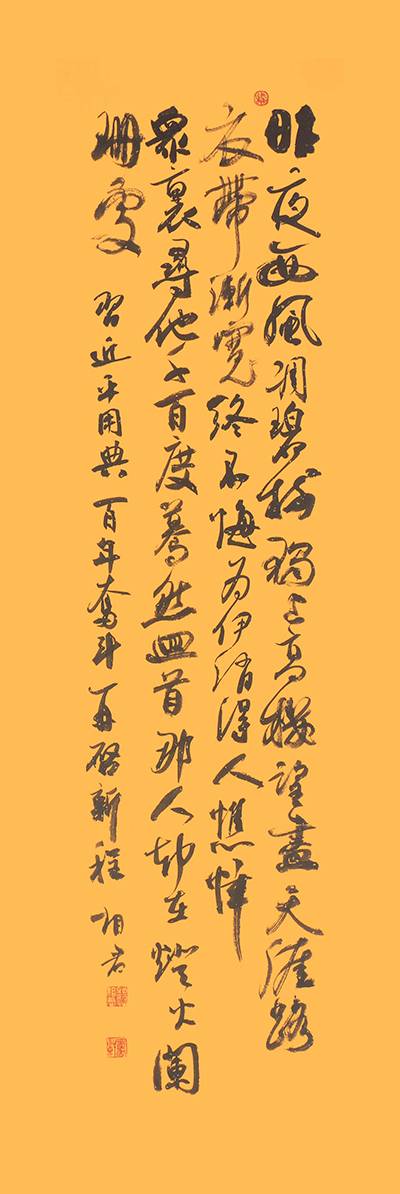 昨夜西風凋碧樹獨上高樓望盡天涯路
衣帶漸寬終不悔為伊消得人憔悴
眾裏尋他千百度驀然回首那人却在燈火闌
珊處
習近平用典百年奮斗再啓新程